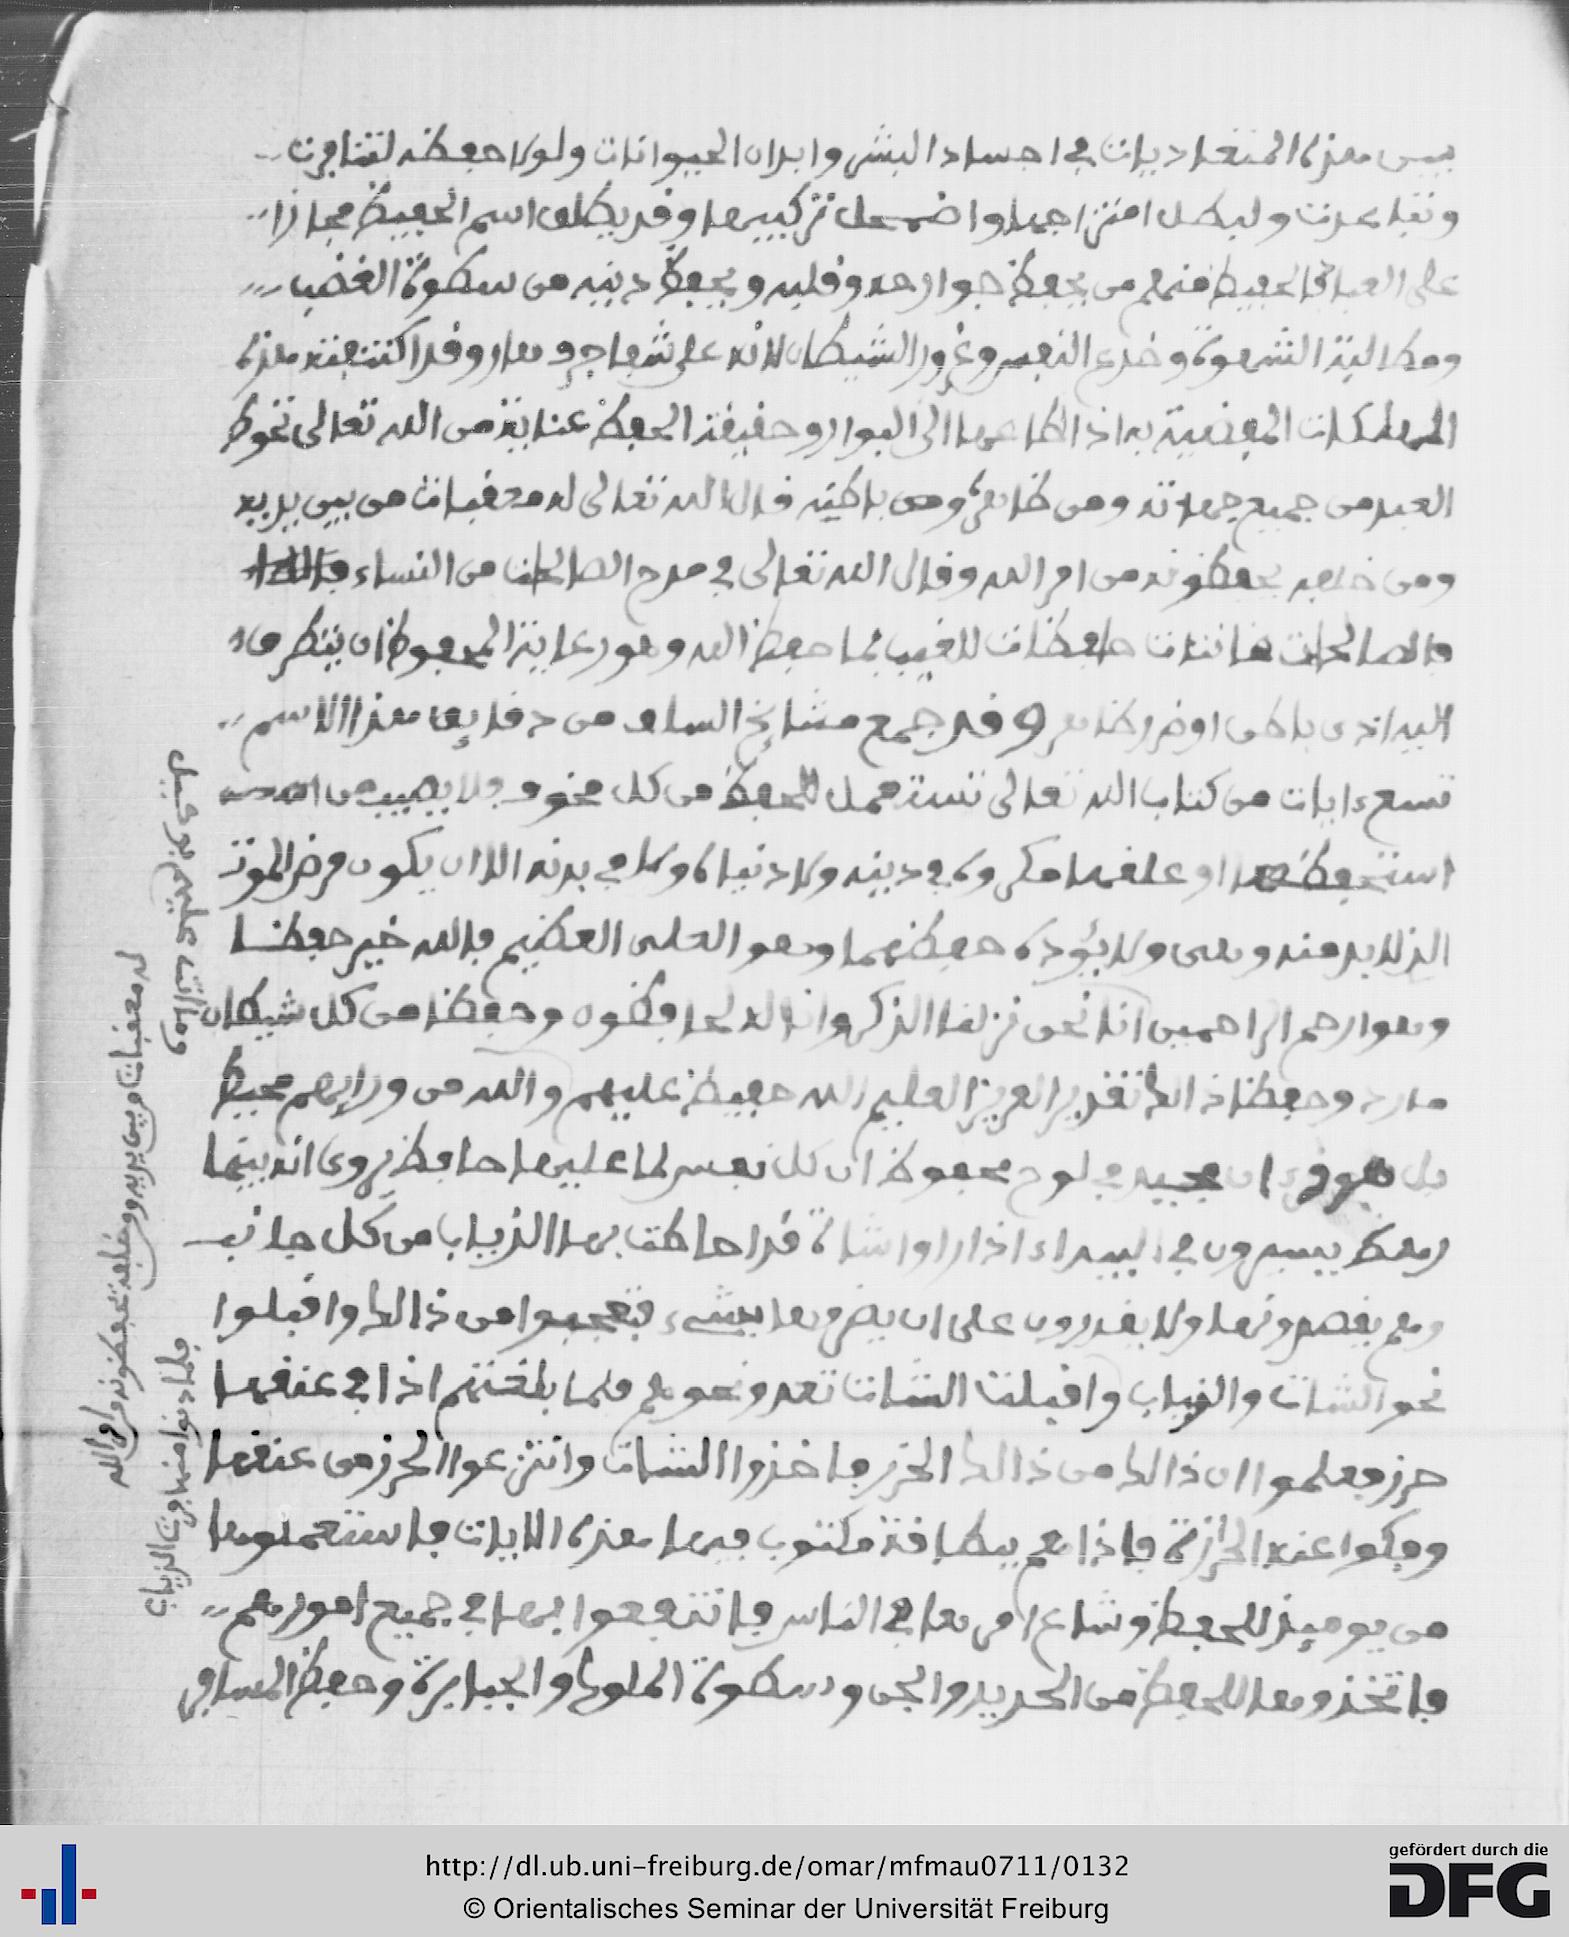 بين هذه المتعاديات في اجساد البشر وابدان الحيوانات ولولا حفظه لتنافرت
وتباعدت ولبطل امتزاجها واضمحل تركيبها وقد يطلق اسم الحفيظ مجازا
على العباد فالحفيظ منهم من يحفظ جوارحه وقلبه ويحفظ دينه من سطوة الغضب
ومطالبة الشهوة وخدع النفس وغرور الشيطان لانه على شفا جرف هار وقد اكتنفته هذه
المهلكات المفضية به اذا اطاعها الى البوار وحقيقة الحفظ عناية من الله تعالى تحوط
العبد من جميع جهاته ومن ظاهره ومن باطنه قال الله تعالى له معقبات من بين يديه
ومن خلفه يحفظونه من امر الله وقال الله تعالى في مدح الصالحات من النساء
فالصالحات قانتات حافظات للغيب بما حفظ الله وهو رعاية المحفوظ ان ينظر ما
اليه اذى باطن او ضر ظاهر وقد جمع مشايخ السلف من دقايق هذا الاسم
تسع ءايات من كتاب الله تعالى تستعمل للحفظ من كل مخوف فلا يصيب من
استحفظ بها او علقها مكروه في دينه ولا دنياه ولا في بدنه الا ان يكون مرض الموت
الذ لا بد منه وهي ولا يؤده حفظهما وهو العلى العظيم فالله خير حفظا
وهو ارحم الراحمين انا نحن نزلنا الذكر وانا له لحافظون وحفظا من كل شيطان
مارد وحفظا ذالك تقدير العزيز العليم الله حفيظ عليهم والله من ورايهم محيط
بل هو قرءان مجيد في لوح محفوظ ان كل نفس لما عليها حافظ يروى انه بينما
رهط يسيرون في البيداء اذ اراوا شاة قد احاطت بها الذياب من كل جانب
وهم يقصدونها ولا يقدرون على ان يضروها بشيء فتعجبوا من ذالك واقبلوا
نحو الشات والذياب واقبلت الشات تعدو نحوهم فلما بلغتهم اذا في عنقها
حرز فعلموا ان ذالك من ذالك الحرز فاخذوا الشات وانتزعوا الحرز من عنقها
وفكوا عنه الخرزة فاذا هم ببطاقة مكتوب فيها هذه الايات فاستعملوها
من يوميذ للحفظ وشاع امرها في الناس فانتفعوا بها في جميع امورهم
فاتخذوها للحفظ من الحديد والجن وسطوة الملوك والجبابرة وحفظ المسافر
وما انت عليهم بوكيل
له معقبات من بين يديه ومن خلفه يحفظونه من امر الله
فلما دنوا منها فرت الذياب
http://dl.ub.uni-freiburg.de/omar/mfmau0711/0132
© Orientalisches Seminar der Universität Freiburg
gefördert durch die
DFG